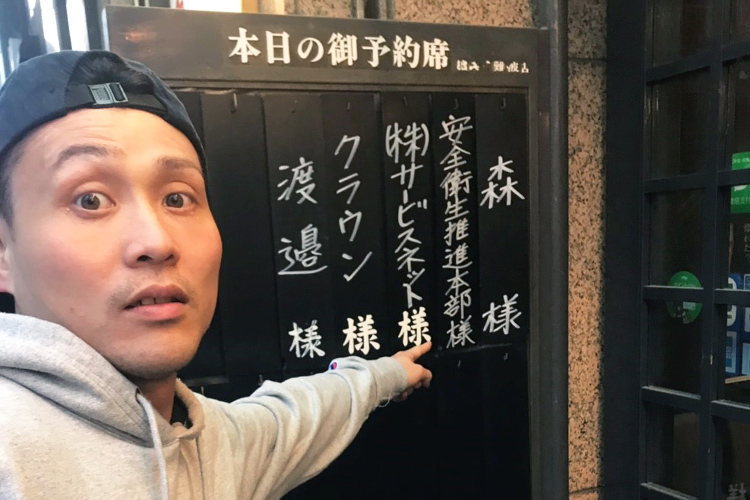 本日の御予約席
森 様
安全衛生推進本部様
(株)サービスネット様
クラウン 様
渡邉 様